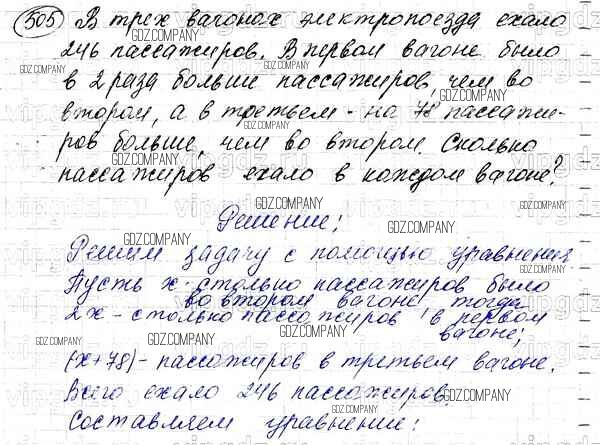 505 В трех вагонах электропоезда ехало
246 пассажиров. В первом вагоне было
в 2 раза больше пассажиров, чем во
втором, а в третьем - на 78 пассажи-
ров больше, чем во втором. Сколько
пассажиров ехало в каждом вагоне?
Решение:
Решим задачу с помощью уравнения.
Пусть x - столько пассажиров было
во втором вагоне тогда
2x - столько пассажиров в первом
вагоне;
(x+78) - пассажиров в третьем вагоне.
Всего ехало 246 пассажиров.
Составляем уравнение: